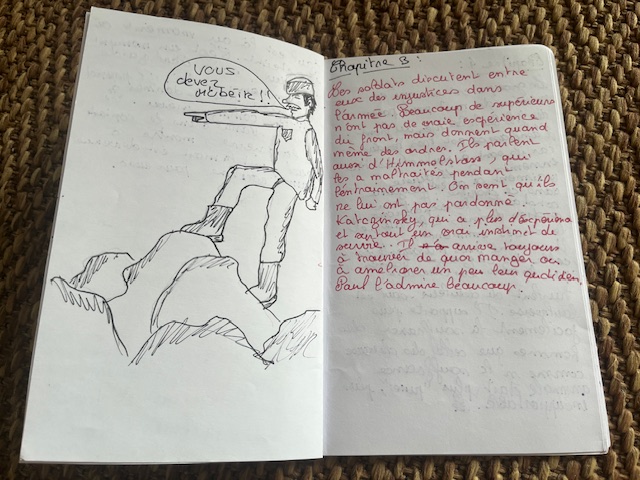 VOUS
devez
m'obeir !!
Chapitre 3 :
Les soldats discutent entre
eux des injustices dans
l'armée. Beaucoup de supérieurs
n'ont pas de vraie expérience
du front, mais donnent quand
même des ordres. Ils parlent
aussi d'Himmelstoss, qui
les a maltraités pendant
l'entraînement. On sent qu'ils
ne lui ont pas pardonné.
Katczinsky, qui a plus d'expérience
et surtout un vrai instinct de
survie. Il arrive toujours
à trouver de quoi manger ou
à améliorer un peu leur quotidien.
Paul l'admire beaucoup.